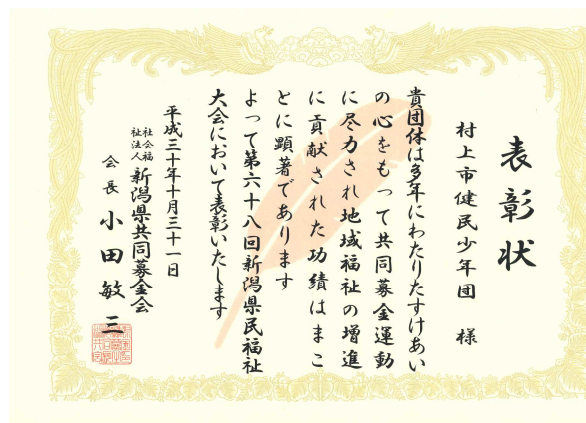 表彰状
村上市健民少年団 様
貴団体は多年にわたりたすけあい
の心をもって共同募金運動
に尽力され地域福祉の増進
に貢献された功績はまこ
とに顕著であります
よって第六十八回新潟県民福祉
大会において表彰いたします
平成三十年十月三十一日
社会福祉法人 新潟県共同募金会
会長 小田敏三